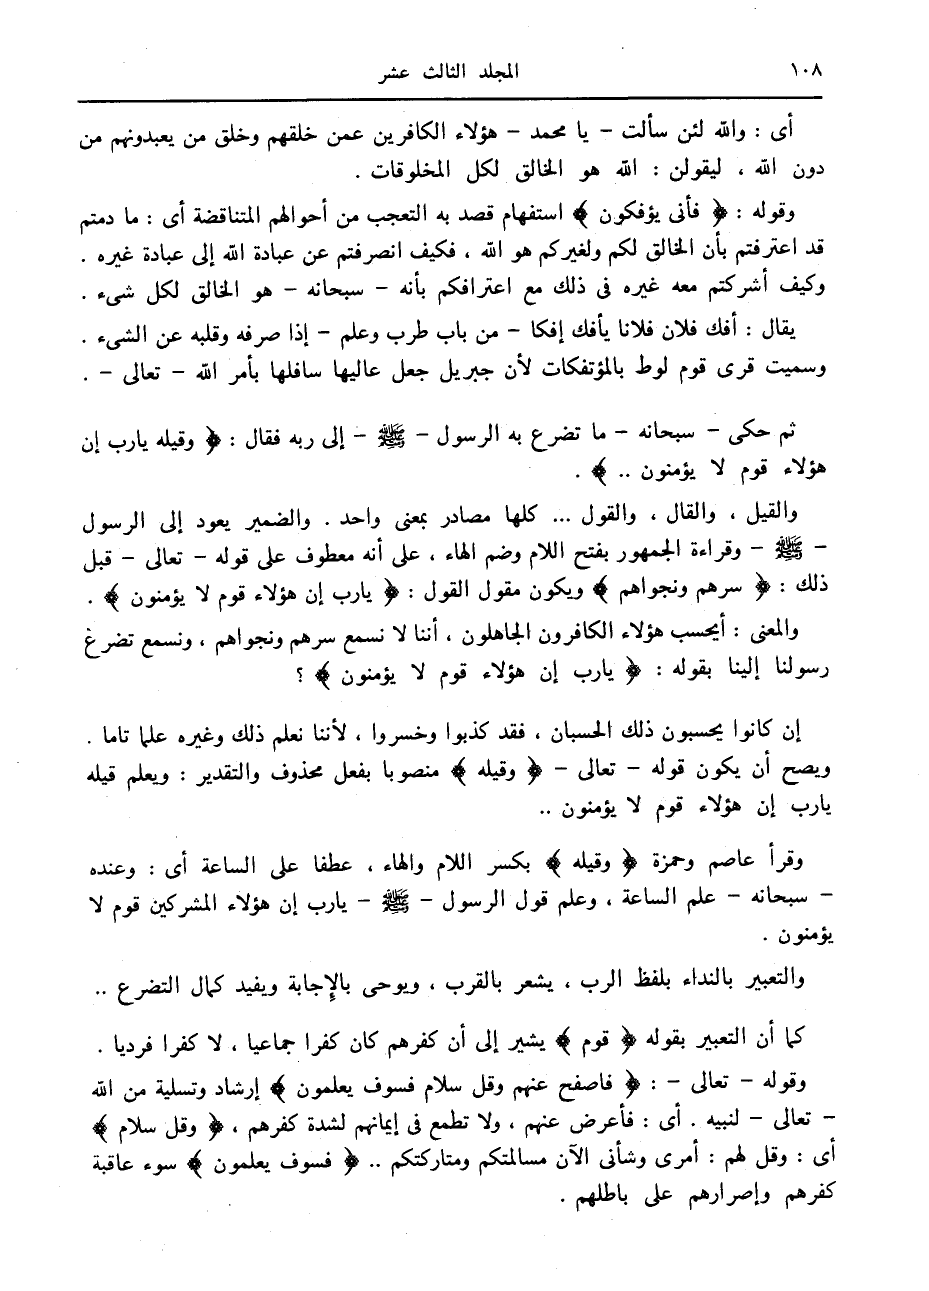 ١٠٨
المجلد الثالث عشر
أى : والله لئن سألت – يا محمد – هؤلاء الكافرين عمن خلقهم وخلق من يعبدونهم من
دون الله ، ليقولن : الله هو الخالق لكل المخلوقات .
وقوله : ﴿ فأنى يؤفكون ﴾ استفهام قصد به التعجب من أحوالهم المتناقضة أى : ما دمتم
قد اعترفتم بأن الخالق لكم ولغيركم هو الله ، فكيف انصرفتم عن عبادة الله إلى عبادة غيره .
وكيف أشركتم معه غيره فى ذلك مع اعترافكم بأنه – سبحانه – هو الخالق لكل شىء .
يقال : أفك فلان فلانا يأفك إفكا – من باب طرب وعلم – إذا صرفه وقلبه عن الشىء .
وسميت قرى قوم لوط بالمؤتفكات لأن جبريل جعل عاليها سافلها بأمر الله – تعالى – .
ثم حكى – سبحانه – ما تضرع به الرسول – ﷺ – إلى ربه فقال : ﴿ وقيله يارب إن
هؤلاء قوم لا يؤمنون .. ﴾ .
والقيل ، والقال ، والقول ... كلها مصادر بمعنى واحد . والضمير يعود إلى الرسول
– ﷺ – وقراءة الجمهور بفتح اللام وضم الهاء ، على أنه معطوف على قوله – تعالى – قبل
ذلك : ﴿ سرهم ونجواهم ﴾ ويكون مقول القول : ﴿ يارب إن هؤلاء قوم لا يؤمنون ﴾ .
والمعنى : أيحسب هؤلاء الكافرون الجاهلون ، أننا لا نسمع سرهم ونجواهم ، ونسمع تضرع
رسولنا إلينا بقوله : ﴿ يارب إن هؤلاء قوم لا يؤمنون ﴾ ؟
إن كانوا يحسبون ذلك الحسبان ، فقد كذبوا وخسروا ، لأننا نعلم ذلك وغيره علما تاما .
ويصح أن يكون قوله – تعالى – ﴿ وقيله ﴾ منصوبا بفعل محذوف والتقدير : ويعلم قيله
يارب إن هؤلاء قوم لا يؤمنون ..
وقرأ عاصم وحمزة ﴿ وقيله ﴾ بكسر اللام والهاء ، عطفا على الساعة أى : وعنده
– سبحانه – علم الساعة ، وعلم قول الرسول – ﷺ – يارب إن هؤلاء المشركين قوم لا
يؤمنون .
والتعبير بالنداء بلفظ الرب ، يشعر بالقرب ، ويوحى بالإجابة ويفيد كمال التضرع ..
كما أن التعبير بقوله ﴿ قوم ﴾ يشير إلى أن كفرهم كان كفرا جماعيا ، لا كفرا فرديا .
وقوله – تعالى – : ﴿ فاصفح عنهم وقل سلام فسوف يعلمون ﴾ إرشاد وتسلية من الله
– تعالى – لنبيه . أى : فأعرض عنهم ، ولا تطمع فى إيمانهم لشدة كفرهم ، ﴿ وقل سلام ﴾
أى : وقل لهم : أمرى وشأنى الآن مسالمتكم ومتاركتكم .. ﴿ فسوف يعلمون ﴾ سوء عاقبة
كفرهم وإصرارهم على باطلهم .